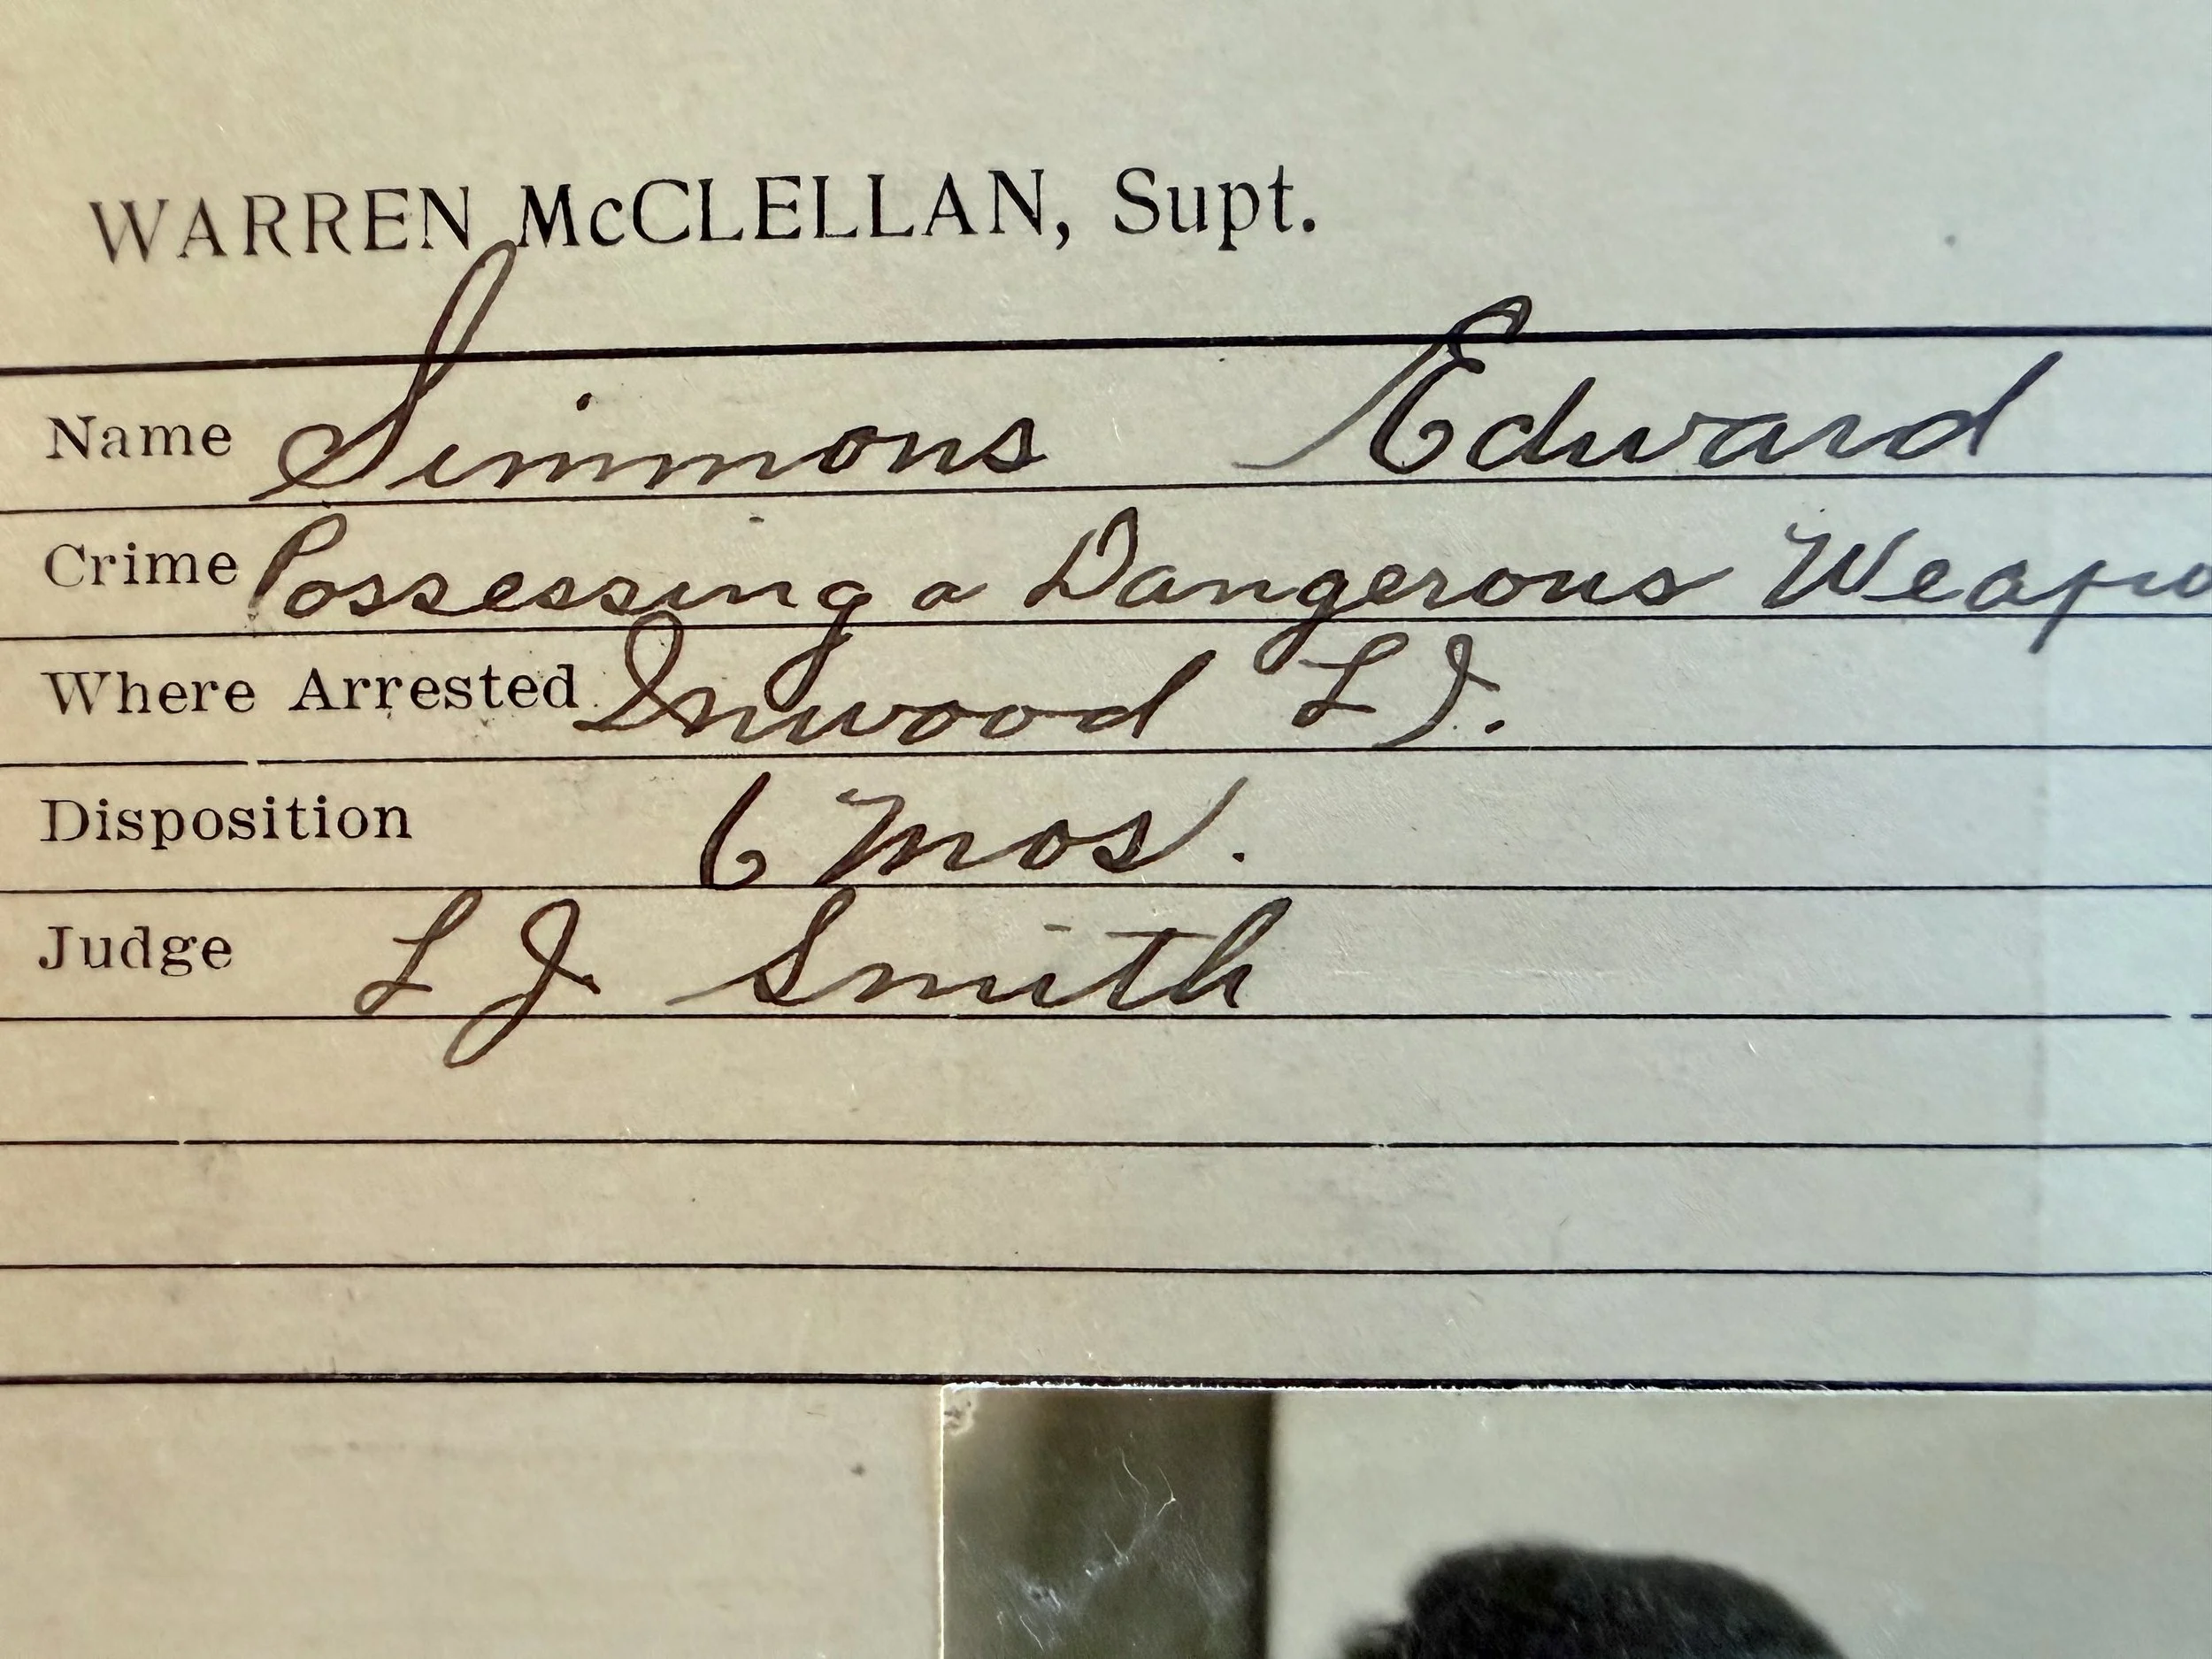 WARREN McCLELLAN, Supt.
Name Simmons Edward
Crime Possessing a Dangerous Weapo
Where Arrested Inwood L I.
Disposition 6 Mos.
Judge L J. Smith